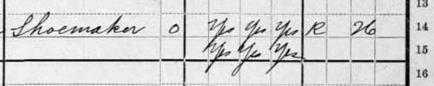 13
Shoemaker O Yes Yes Yes R 26 14
Yes Yes Yes 15
16